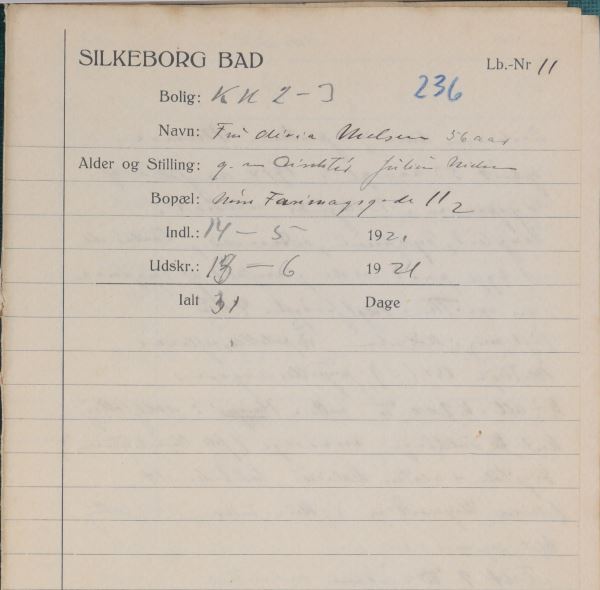 SILKEBORG BAD
Lb.-Nr 11
Bolig: KH 2-3 236
Navn: Fru Nielsen 56 aar
Alder og Stilling: g. m Julius Nielsen
Bopæl: Nørre Farimagsgade 11 2
Indl.: 14 - 5 1921
Udskr.: 13 - 6 1921
Ialt 31 Dage